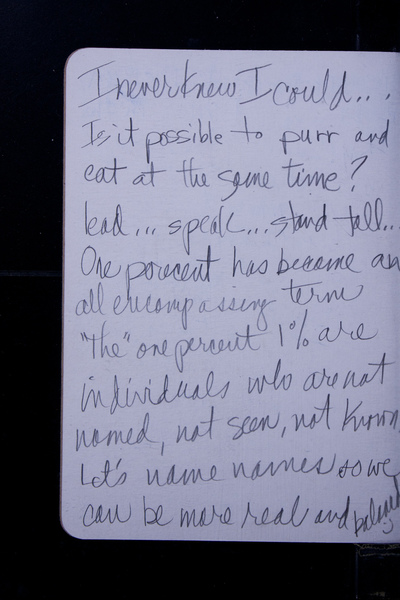 I never knew I could...
Is it possible to purr and
eat at the same time?
lead... speak... stand tall...
One porecent has become an
all encompassing term
"the" one percent 1% are
individuals who are not
named, not seen, not known
Let's name names so we
can be more real and balanced